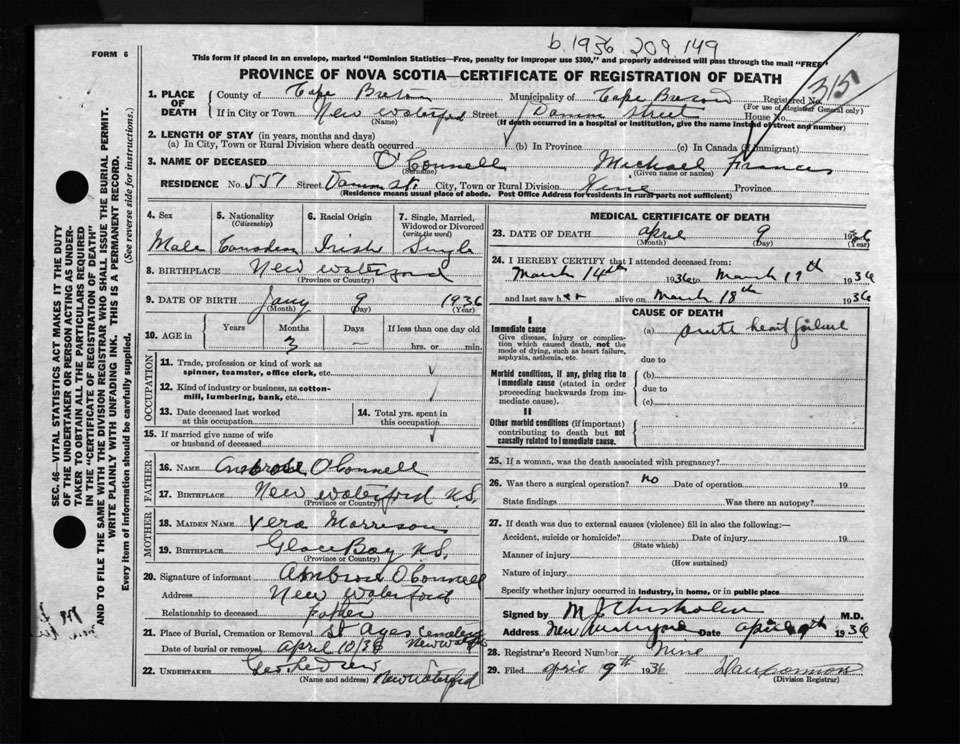 b. 1936 209 149
FORM 6
This form if placed in an envelope, marked "Dominion Statistics—Free, penalty for improper use $300," and properly addressed will pass through the mail "FREE"
PROVINCE OF NOVA SCOTIA—CERTIFICATE OF REGISTRATION OF DEATH
315
1. PLACE OF DEATH
County of Cape Breton Municipality of Cape Breton Registered No.
(For use of Registrar General only)
If in City or Town New Waterford Street Street House No.
(Name) (If death occurred in a hospital or institution, give the name instead of street and number)
2. LENGTH OF STAY (in years, months and days)
(a) In City, Town or Rural Division where death occurred (b) In Province (c) In Canada (if immigrant)
3. NAME OF DECEASED O'Connell Michael Francis
(Surname) (Given name or names)
RESIDENCE No. 557 Street St. City, Town or Rural Division Province
(Residence means usual place of abode. Post Office Address for residents in rural parts not sufficient)
4. Sex
Male
5. Nationality
(Citizenship)
Canadian
6. Racial Origin
Irish
7. Single, Married, Widowed or Divorced
(write the word)
Single
8. BIRTHPLACE New Waterford
(Province or Country)
9. DATE OF BIRTH Jany 9 1936
(Month) (Day) (Year)
10. AGE in Years Months Days If less than one day old
3 – hrs. or min.
OCCUPATION
11. Trade, profession or kind of work as spinner, teamster, office clerk, etc.
12. Kind of industry or business, as cotton-mill, lumbering, bank, etc.
13. Date deceased last worked at this occupation
14. Total yrs. spent in this occupation
15. If married give name of wife or husband of deceased
FATHER
16. NAME Ambrose O'Connell
17. BIRTHPLACE New Waterford N.S.
(Province or Country)
MOTHER
18. MAIDEN NAME Vera Morrison
19. BIRTHPLACE Glace Bay N.S.
(Province or Country)
20. Signature of informant Ambrose O'Connell
Address New Waterford
Relationship to deceased Father
21. Place of Burial, Cremation or Removal St Cemetery
New
Date of burial or removal April 10/36
22. UNDERTAKER New Waterford
(Name and address)
MEDICAL CERTIFICATE OF DEATH
23. DATE OF DEATH April 9 1936
(Month) (Day) (Year)
24. I HEREBY CERTIFY that I attended deceased from:
March 14th 1936 to March 19th 1936
and last saw h alive on March 18th 1936
CAUSE OF DEATH
I
Immediate cause
Give disease, injury or complication which caused death, not the mode of dying, such as heart failure, asphyxia, asthenia, etc.
(a) acute heart failure
due to
Morbid conditions, if any, giving rise to immediate cause (stated in order proceeding backwards from immediate cause).
(b)
due to
(c)
II
Other morbid conditions (if important) contributing to death but not causally related to immediate cause.
25. If a woman, was the death associated with pregnancy?
26. Was there a surgical operation? no Date of operation 19
State findings Was there an autopsy?
27. If death was due to external causes (violence) fill in also the following:—
Accident, suicide or homicide? Date of injury 19
(State which)
Manner of injury
(How sustained)
Nature of injury
Specify whether injury occurred in industry, in home, or in public place
Signed by M. J. Chisholm M.D.
Address New Date April 9th 1936
28. Registrar's Record Number Nine
29. Filed April 9th 1936
(Division Registrar)
SEC. 46—VITAL STATISTICS ACT MAKES IT THE DUTY
OF THE UNDERTAKER OR PERSON ACTING AS UNDER-
TAKER TO OBTAIN ALL THE PARTICULARS REQUIRED
IN THE "CERTIFICATE OF REGISTRATION OF DEATH"
AND TO FILE THE SAME WITH THE DIVISION REGISTRAR WHO SHALL ISSUE THE BURIAL PERMIT.
WRITE PLAINLY WITH UNFADING INK. THIS IS A PERMANENT RECORD.
Every item of information should be carefully supplied. (See reverse side for instructions.)